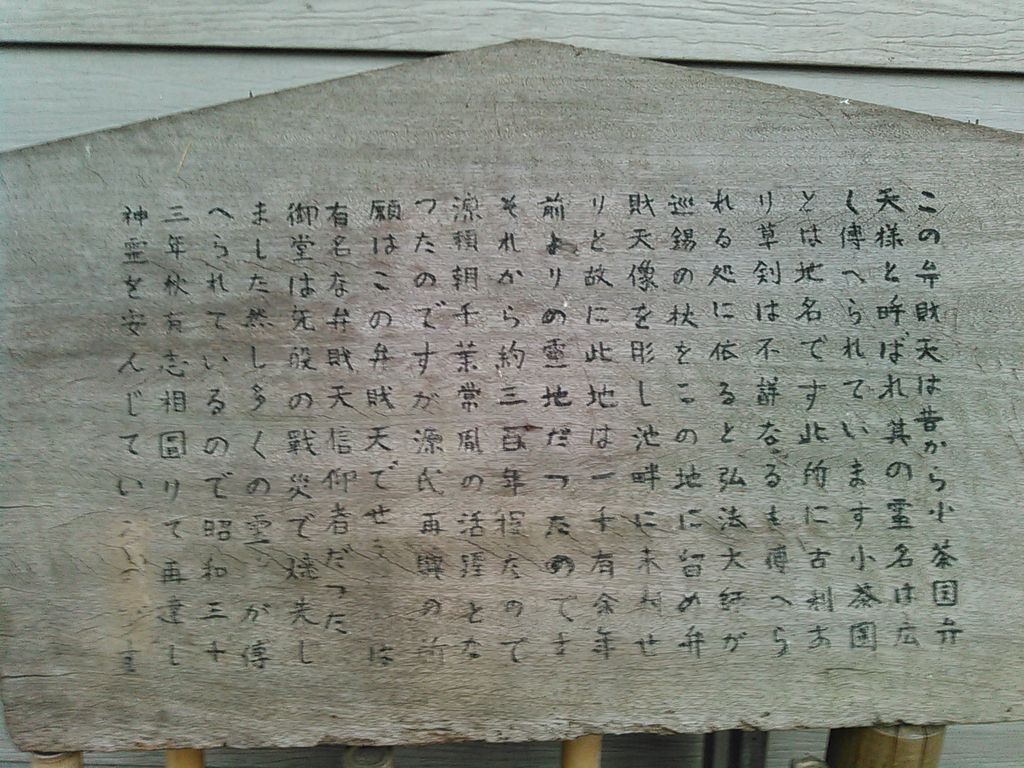 この弁財天は昔から小茶围弁
天様と呼ばれ其の霊名は広
く傳へられています小茶围
とは地名です此所に古刹あ
り草剣は不詳なるも傳へら
れる処に依ると弘法大師が
巡錫の杖をこの地に留め弁
財天像を彫し池畔に未刻せ
りと故に此地は一千有余年
前よりの霊地だつたのでま
それから約三百年程たので
源頼朝千葉常胤の活躍とな
つたのですが源氏再興の祈
願はこの弁財天でせ は
有名な弁財天信仰者だった
御堂は先般の戰災で焼失し
ました然し多くの霊 が傳
へられているので昭和三十
三年秋有志相圖りて再建し
神霊を安んじてい